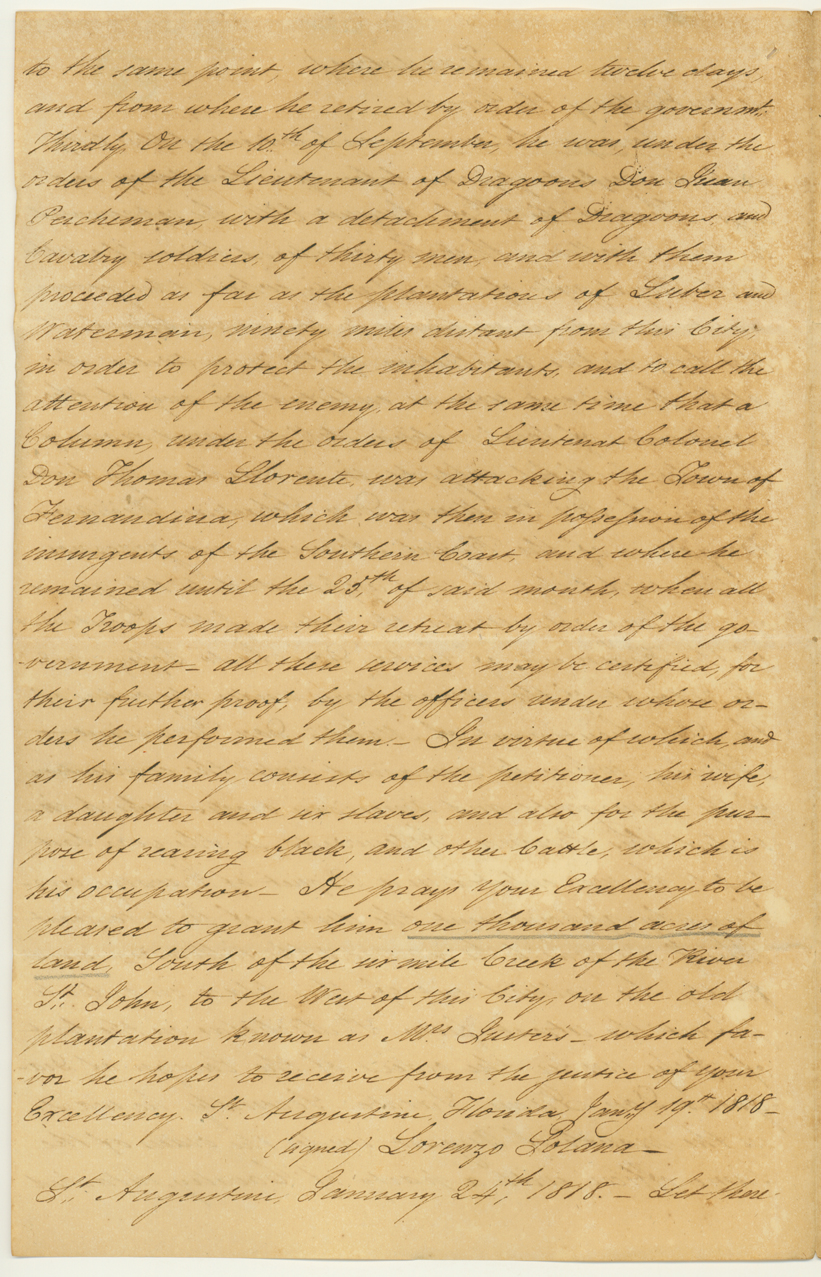 to the same point, where he remained twelve days,
and from where he retired by order of the governmt.
Thirdly, On the 10th of September, he was, under the
orders of the Lieutenant of Dragoons Don Juan
Percheman, with a detachment of Dragoons, and
Cavalry soldiers, of thirty men, and with them
proceeded as far as the plantations of and
Waterman, ninety miles distant from this City,
in order to protect the inhabitants, and to call the
attention of the enemy, at the same time that a
Column, under the orders of Lieutenat Colonel
Don Thomas Llorente, was attacking the Town of
Fernandina, which was then in possession of the
insurgents of the Southern Coast, and where he
remained until the 25th of said month, when all
the Troops made their retreat by order of the go-
-vernment – all these services may be certified, for
their further proof, by the officers under whose or-
ders he performed them. – In virtue of which, and
as his family consists of the petitioner, his wife,
a daughter and six slaves, and also for the pur-
pose of rearing black, and other Cattle, which is
his occupation – He prays Your Excellency to be
pleased to grant him one thousand acres of
land, South of the six mile Creek of the River
St. John, to the West of this City, on the old
plantation known as Mrs – which fa-
-vor he hopes to receive from the justice of Your
Excellency. St. Augustine, Florida, Jany 19th 1818 –
(signed) Lorenzo Solana –
St. Augustine, January 24th, 1818. – Let there